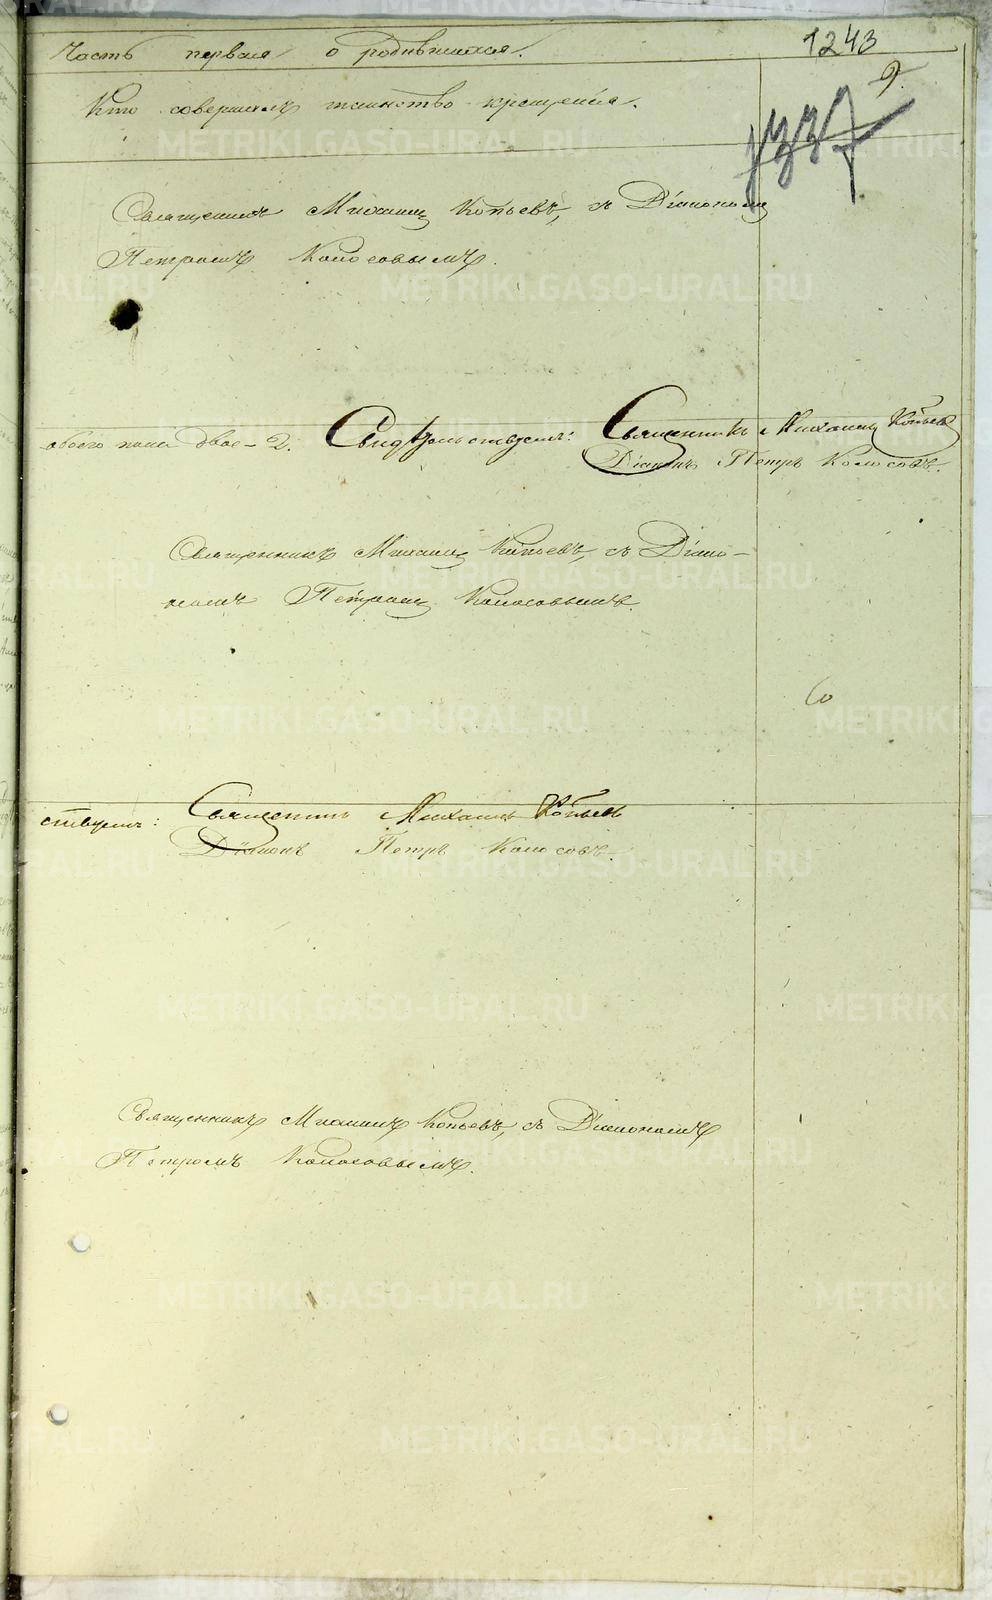 Часть первая о родившихся.
1243
9.
Кто совершалъ таинство крещенія.
1337
Священникъ Михаилъ Копьевъ, съ Діакономъ
Петромъ Колосовымъ.
обоего пола двое - 2. Свидѣтельствуемъ: Священникъ Михаилъ Копьевъ
Діаконъ Петръ Колосовъ.
Священникъ Михаилъ Копьевъ, съ Діако-
номъ Петромъ Колосовымъ.
ствуемъ: Священникъ Михаилъ Копьевъ
Діаконъ Петръ Колосовъ.
Священникъ Михаилъ Копьевъ, съ Діакономъ
Петромъ Колосовымъ.
METRIKI.GASO-URAL.RU